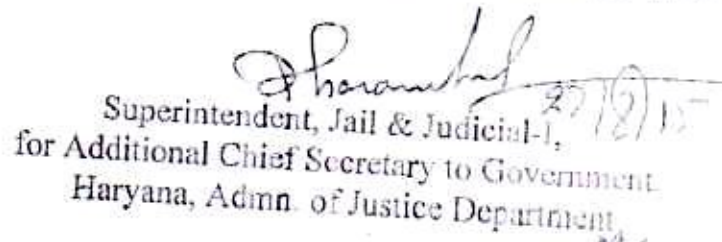 Superintendent, Jail & Judicial-I,
for Additional Chief Secretary to Government
Haryana, Admn. of Justice Department